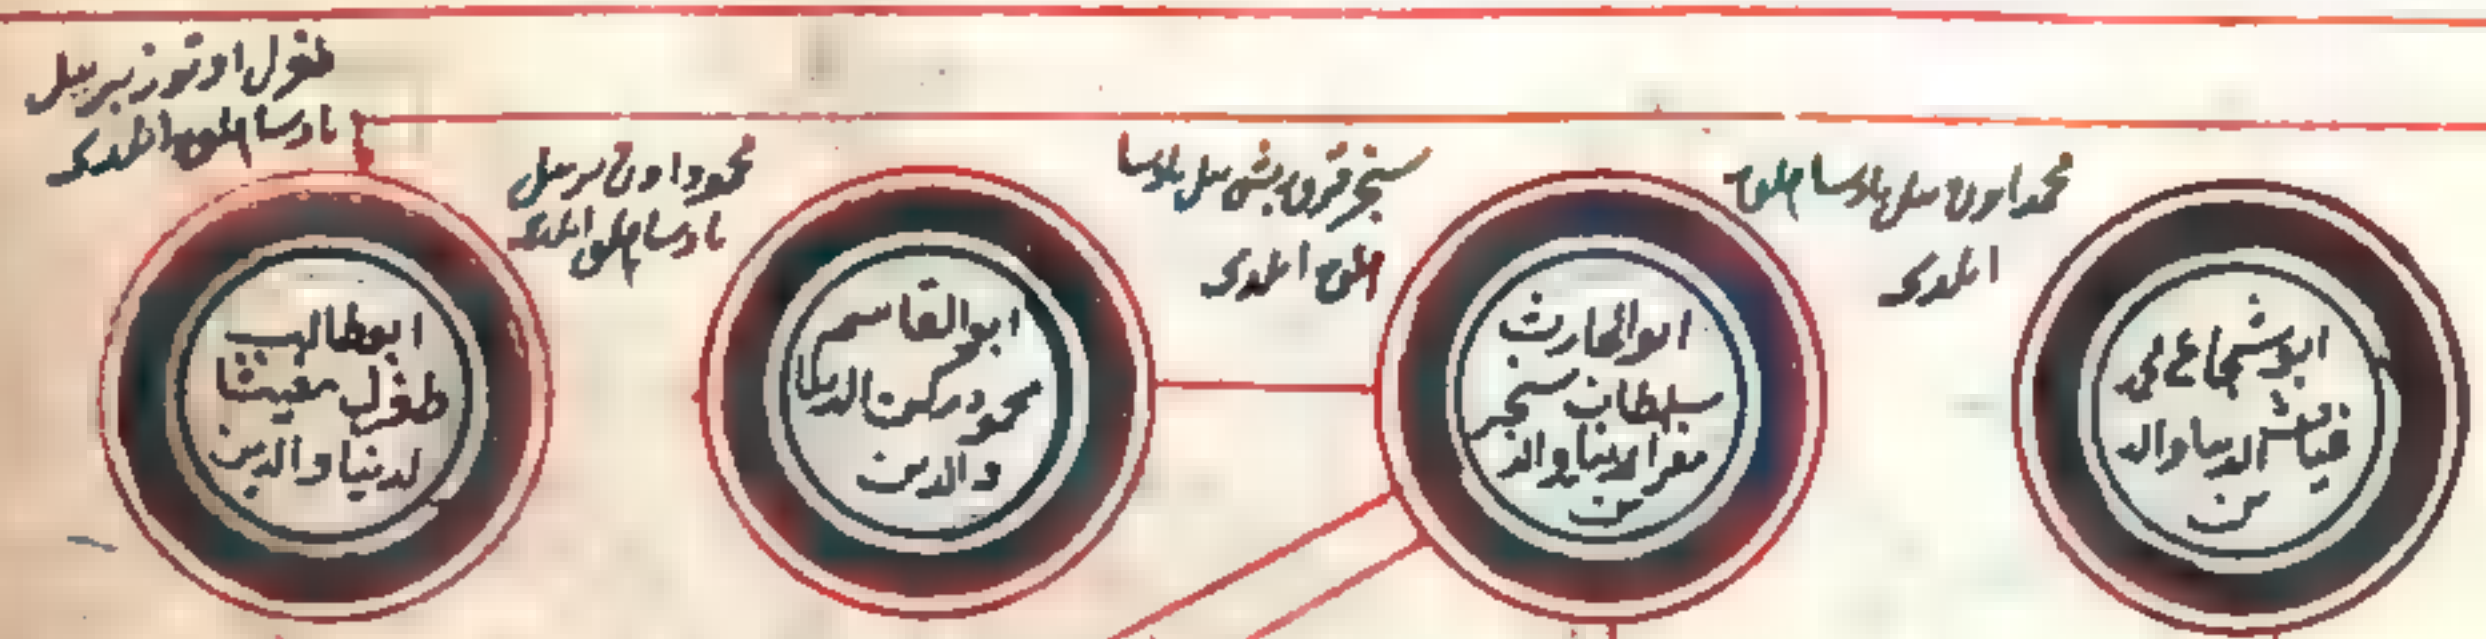 محمد اون ییل پادشاهلق
ایلدی
ابو شجاع محمد
غیاث الدنیا والد
ین
سنجر قرق بش ییل پادشا
هلق ایلدی
ابو الحارث
سلطان سنجر
معز الدنیا والد
ین
محمود اون بر ییل
پادشاهلق ایلدی
ابو القاسم
محمود رکن الدنیا
والدین
طغرل اوتوز بر ییل
پادشاهلق ایلدی
ابو طالب
طغرل مغیث ا
لدنیا والدین